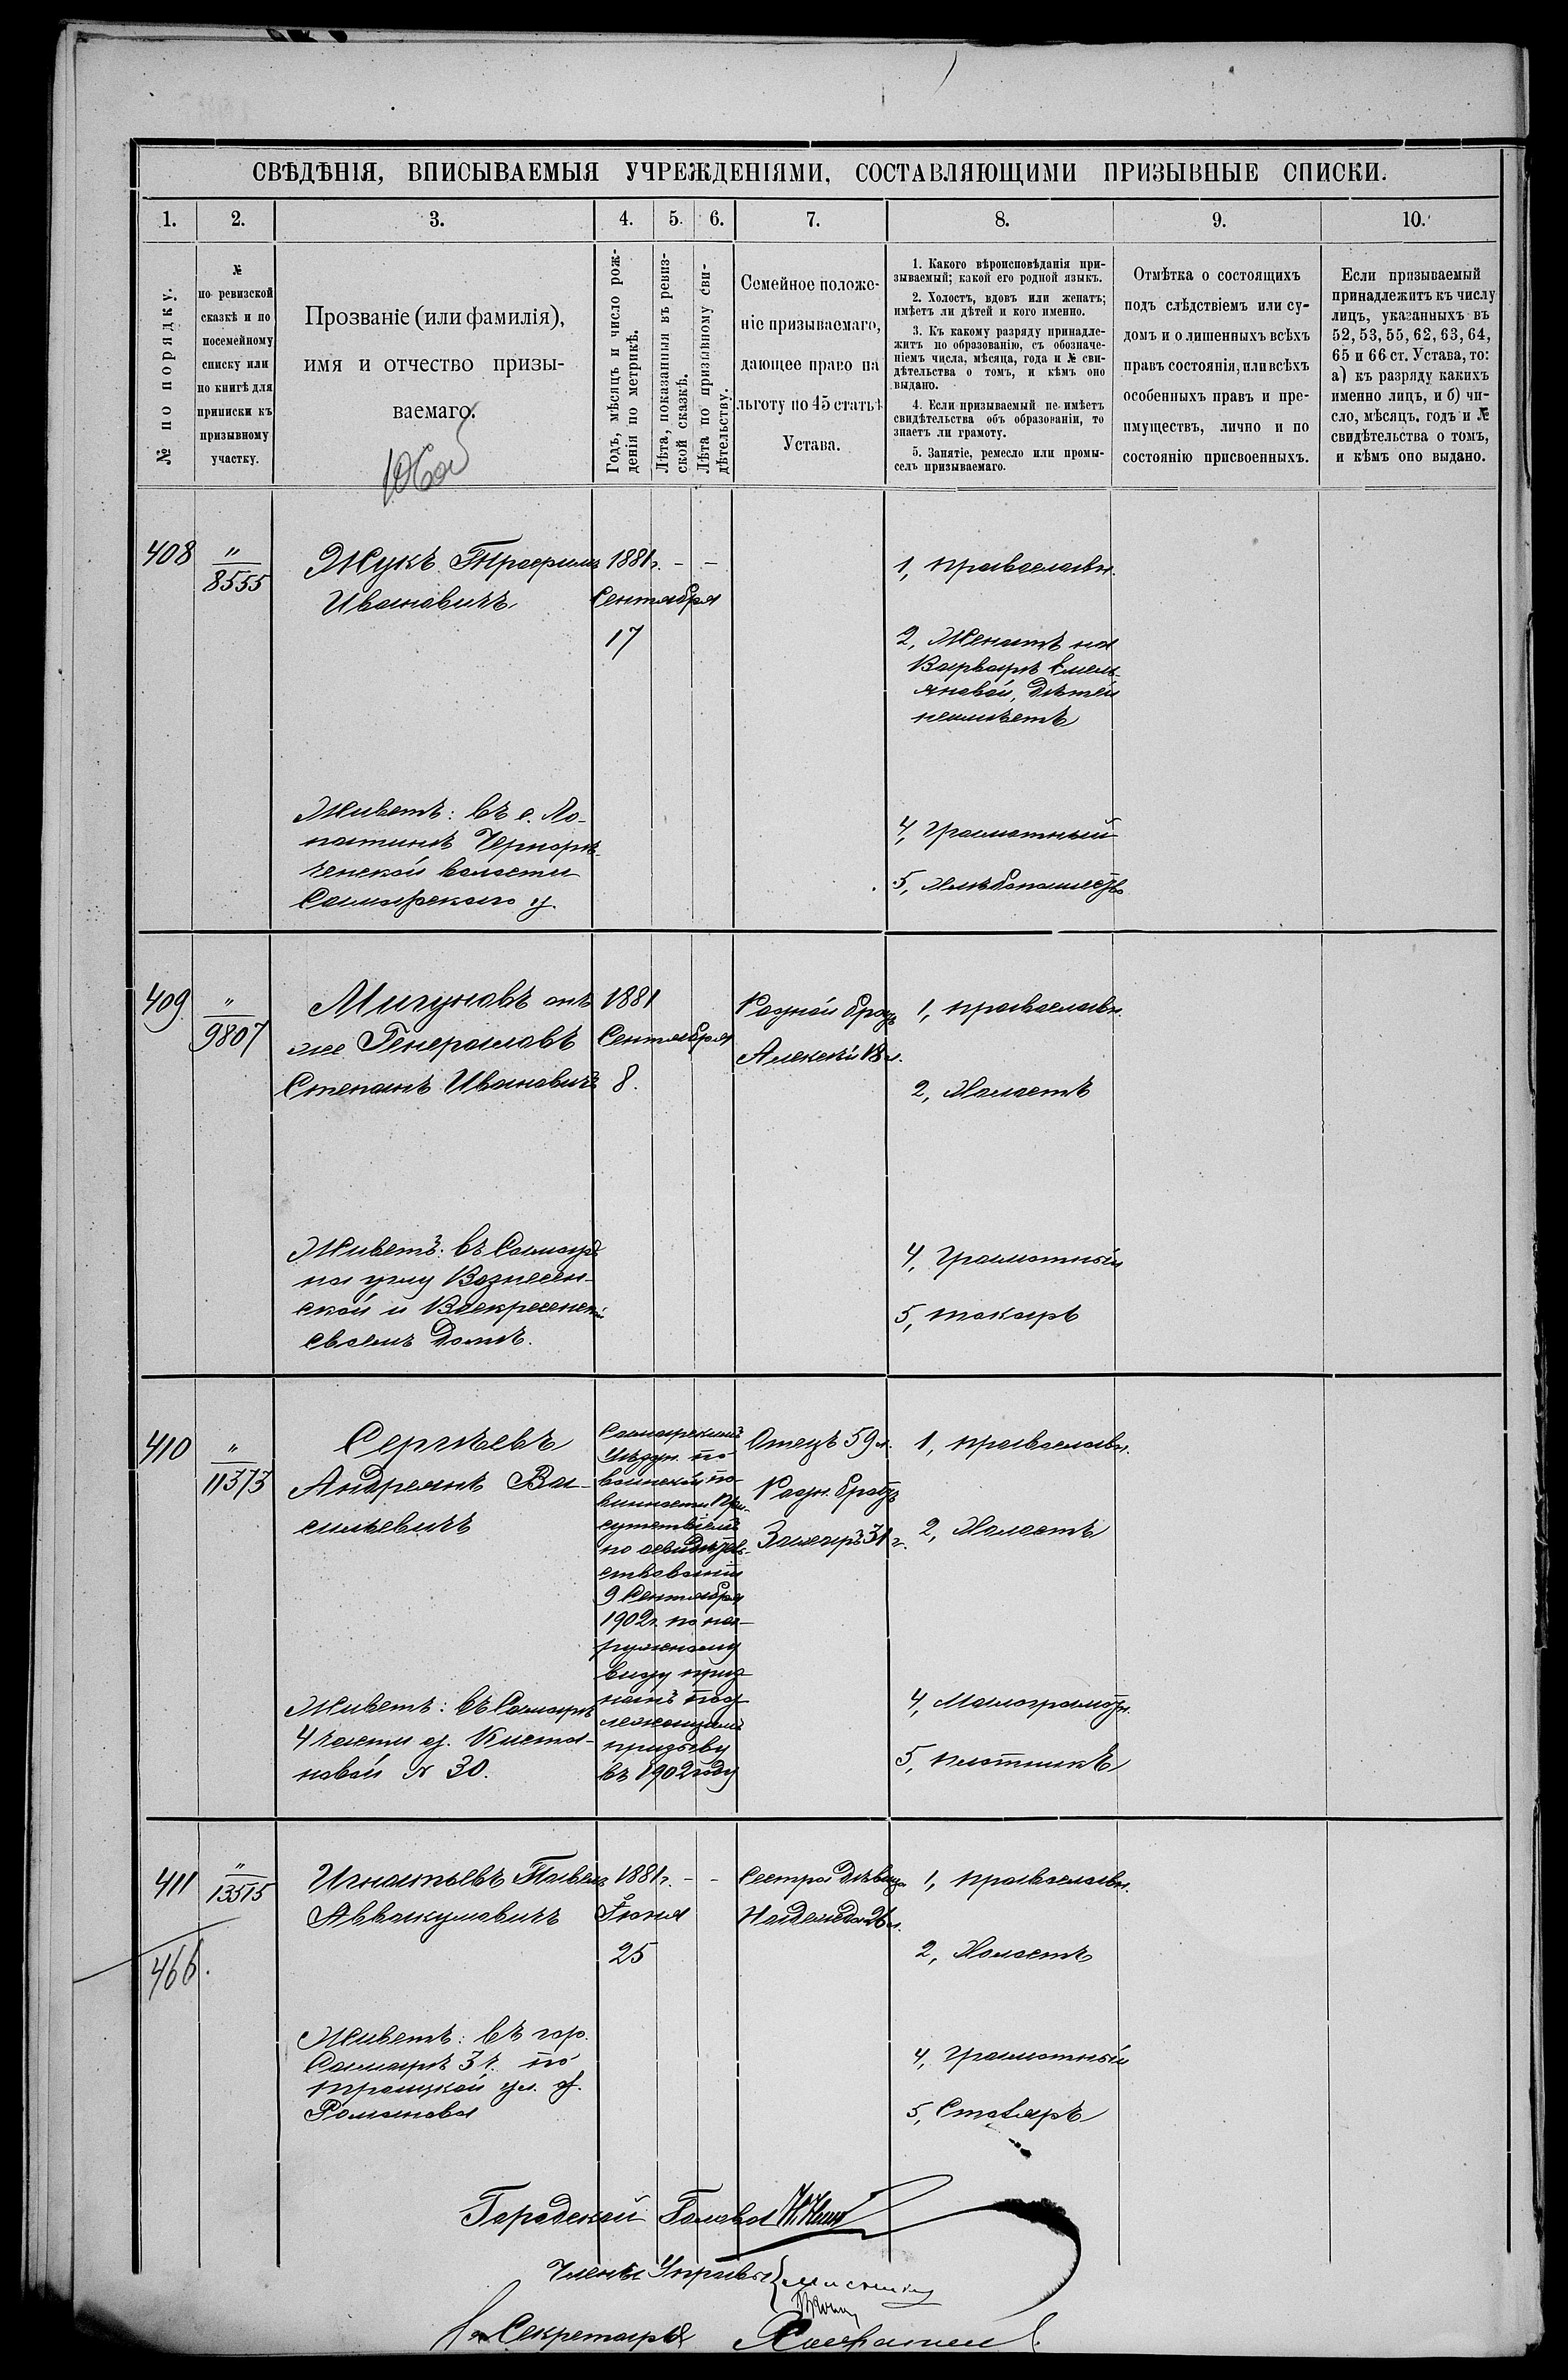 СВѢДѢНІЯ, ВПИСЫВАЕМЫЯ УЧРЕЖДЕНІЯМИ, СОСТАВЛЯЮЩИМИ ПРИЗЫВНЫЕ СПИСКИ.
1. 2. 3. 4. 5. 6. 7. 8. 9. 10.
№ по порядку.
№
по ревизской
сказкѣ и по
посемейному
списку или
по книгѣ для
приписки къ
призывному
участку.
Прозваніе (или фамилія),
имя и отчество призы-
ваемаго.
Годъ, мѣсяцъ и число рож-
денія по метрикѣ.
Лѣта, показанныя въ ревиз-
ской сказкѣ.
Лѣта по призывному сви-
дѣтельству.
Семейное положе-
ніе призываемаго,
дающее право на
льготу по 45 статьѣ
Устава.
1. Какого вѣроисповѣданія при-
зываемый; какой его родной языкъ.
2. Холостъ, вдовъ или женатъ;
имѣетъ ли дѣтей и кого именно.
3. Къ какому разряду принадле-
житъ по образованію, съ обозначе-
ніемъ числа, мѣсяца, года и № сви-
дѣтельства о томъ, и кѣмъ оно
выдано.
4. Если призываемый не имѣетъ
свидѣтельства объ образованіи, то
знаетъ ли грамоту.
5. Занятіе, ремесло или промы-
селъ призываемаго.
Отмѣтка о состоящихъ
подъ слѣдствіемъ или су-
домъ и о лишенныхъ всѣхъ
правъ состоянія, или всѣхъ
особенныхъ правъ и пре-
имуществъ, лично и по
состоянію присвоенныхъ.
Если призываемый
принадлежитъ къ числу
лицъ, указанныхъ въ
52, 53, 55, 62, 63, 64,
65 и 66 ст. Устава, то:
а) къ разряду какихъ
именно лицъ, и б) чи-
сло, мѣсяцъ, годъ и №
свидѣтельства о томъ,
и кѣмъ оно выдано.
408
"
8555
Жукъ Трофимъ
Ивановичъ
1881 г. - -
Сентября
17
1, православн.
2, Женатъ на
Варварѣ Емель-
яновой, Дѣтей
неимѣетъ
Живетъ: въ с. Ло-
патинѣ Чернорѣ-
ченской волости
Самарскаго у.
4, Грамотный
5, Хлѣбопашество
409
"
9807
Мигуновъ онъ
же Генераловъ
Степанъ Ивановичъ
1881
Сентября
8.
Родной братъ
Алексѣй 18 л.
1, православн.
2, Холостъ
Живетъ: въ Самарѣ
на углу Вознесен-
ской и Воскресенской
своемъ домѣ.
4, Грамотный
5, токарь
410
"
11373
Сергѣевъ
Андреянъ Ва-
сильевичъ
Самарскимъ
Уѣздн. по
воинской по-
винности При-
сутствіемъ
по освидѣтель-
ствованіи
9 Сентября
1902 г. по на-
ружному
виду приз-
нанъ под-
лежащимъ
призыву
въ 1902 году
Отецъ 59 л.
Родн. братъ
Захаръ 31 г.
1, православн.
2, Холостъ
Живетъ: въ Самарѣ
4 части д. Киста-
новой № 30.
4, Малограмотн.
5, плотникъ
411
"
13515
Игнатьевъ Павелъ
Аввакумовичъ
1881 г. - -
Іюня
25
Сестра Дѣвица
Надежда 26 л.
1, православн.
2, Холостъ
466.
Живетъ: въ гор.
Самарѣ 3 ч. по
троицкой ул. д.
Романова
4, Грамотный
5, Столяръ
Городской Голова
Члены Управы
Секретаря